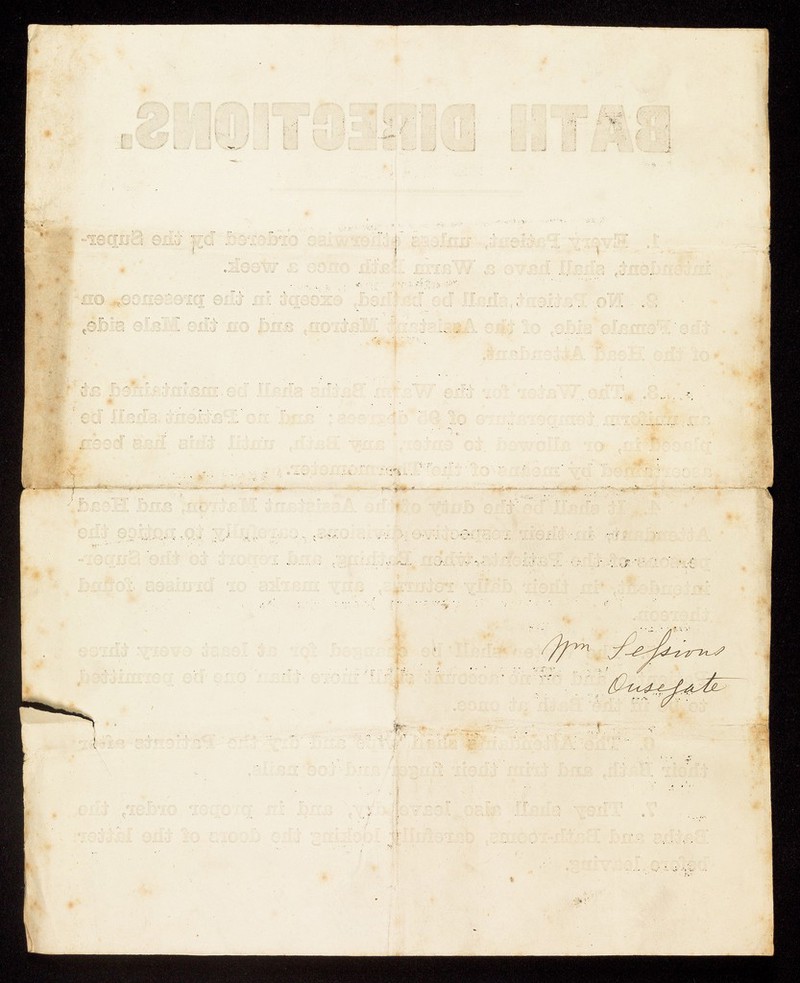 BATH DIRECTIONS.
1. Every Patient, unless otherwise ordered by the Super-
intendent, shall have a Warm Bath once a week.
2. No Patient shall be bathed, except in the presence, on
the Female side, of the Assistant Matron, and on the Male side,
of the Head Attendant.
3. The Water for the Warm Baths shall be maintained at
an uniform temperature of 95 degrees; and no Patient shall be
placed in, or allowed to enter, any Bath, until this has been
ascertained by means of the Thermometer.
4. It shall be the duty of the Assistant Matron and Head
Attendant, in their respective divisions, carefully to notice the
persons of the Patients when Bathing, and report to the Super-
intendent, in their daily returns, any marks or bruises found
thereon.
shall be changed for at least every three
and on no account shall more than one be permitted
to in the Bath at once.
6. The Attendants shall wipe and dry the Patients after
their Bath, and trim their finger and toe nails.
7. They shall also leave dry, and in proper order, the
Baths and Bath-rooms, carefully locking the doors of the latter
before leaving.
Wm Sessions
Ousegate